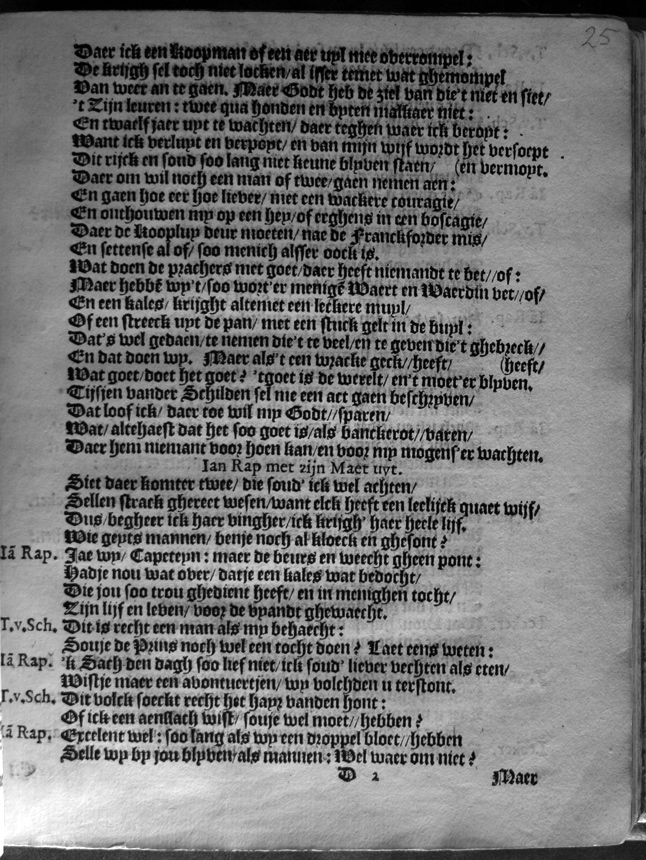 25
Daer ick een Koopman of een aer upl mee overrompel:
De krijgh sel toch niet locken/al isser temet wat ghemompel
Van weer an te gaen. Maer Godt heb de ziel van die't niet en siet/
't Zijn leuren: twee qua honden en byten malkaer niet:
En twaelf jaer uyt te wachten/ daer teghen waer ick beropt:
Want ick verlupt en verpopt/ en van mijn wijf wordt het versoept
Dit rijck en soud soo lang niet keune blyven staen/ (en vermoyt.
Daer om wil noch een man of twee/gaen nemen aen:
En gaen hoe eer hoe liever/ met een wackere couragie/
En onthouwen my op een hey/of erghens in een boscagie/
Daer de Kooplup deur moeten/ nae de Franckforder mis/
En settense al of/ soo menich alsser oock is.
Wat doen de prachers met goet/daer heeft niemandt te bet//of:
Maer hebbē wy't/soo wort'er menigē Waert en Waerdin vet//of/
En een kales/ krijght altemet een leckere muyl/
Of een streeck uyt de pan/ met een stuck gelt in de buyl:
Dat's wel gedaen/te nemen die't te veel/en te geven die't ghebreck//
En dat doen wy. Maer als't een wracke geck//heeft/ (heeft/
Wat goet/doet het goet? 'tgoet is de werelt/ en't moet'er blyven.
Tijsjen vander Schilden sel me een act gaen beschryven/
Dat loof ick/ daer toe wil my Godt//sparen/
Wat/ altehaest dat het soo goet is/als banckerot//varen/
Daer hem niemant voor hoen kan/en voor my mogens'er wachten.
Ian Rap met zijn Maet uyt.
Siet daer komter twee/ die soud' ick wel achten/
Sellen strack ghereet wesen/want elck heeft een leelijck quaet wijf/
Dus/begheer ick haer vingher/ick krijgh' haer heele lijf.
Wie geyts mannen/ benje noch al kloeck en ghesont?
Iā Rap. Jae wy/ Capeteyn: maer de beurs en weecht gheen pont:
Hadje nou wat over/ datje een kales wat bedocht/
Die jou soo trou ghedient heeft/ en in menighen tocht/
Zijn lijf en leven/ voor de vyandt ghewaecht.
T.v.Sch. Dit is recht een man als my behaecht:
Souje de Prins noch wel een tocht doen? Laet eens weten:
Iā Rap. 'k Sach den dagh soo lief niet/ick soud' liever vechten als eten/
Wistje maer een avontuertjen/ wy volchden u terstont.
T.v.Sch. Dit volck soeckt recht het hayr vanden hont:
Of ick een aenslach wist/ souje wel moet//hebben?
Iā Rap. Excelent wel: soo lang als wy een droppel bloet//hebben
Selle wy by jou blyven/als mannen: Wel waer om niet?
D 2 Maer